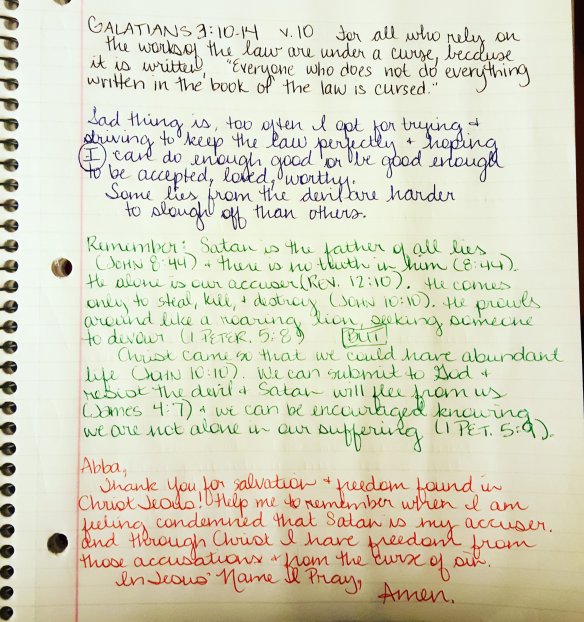 GALATIANS 3:10-14 v.10 For all who rely on
the works of the law are under a curse, because
it is written, "Everyone who does not do everything
written in the book of the law is cursed."
Sad thing is, too often I opt for trying +
striving to keep the law perfectly + hoping
I can do enough good or be good enough
to be accepted, loved, worthy.
Some lies from the devil are harder
to slough off than others.
Remember: Satan is the father of all lies
(JOHN 8:44) + there is no truth in him (8:44).
He alone is our accuser (REV. 12:10). He comes
only to steal, kill, + destroy (JOHN 10:10). He prowls
around like a roaring lion, seeking someone
to devour (1 PETER. 5:8) BUT
Christ came so that we could have abundant
life (JOHN 10:10). We can submit to God +
resist the devil + Satan will flee from us
(James 4:7) + we can be encouraged knowing
we are not alone in our suffering (1 PET. 5:9).
Abba,
Thank You for salvation + freedom found in
Christ Jesus! Help me to remember when I am
feeling condemned that Satan is my accuser.
And through Christ I have freedom from
those accusations + from the curse of sin.
In Jesus' Name I Pray,
Amen.